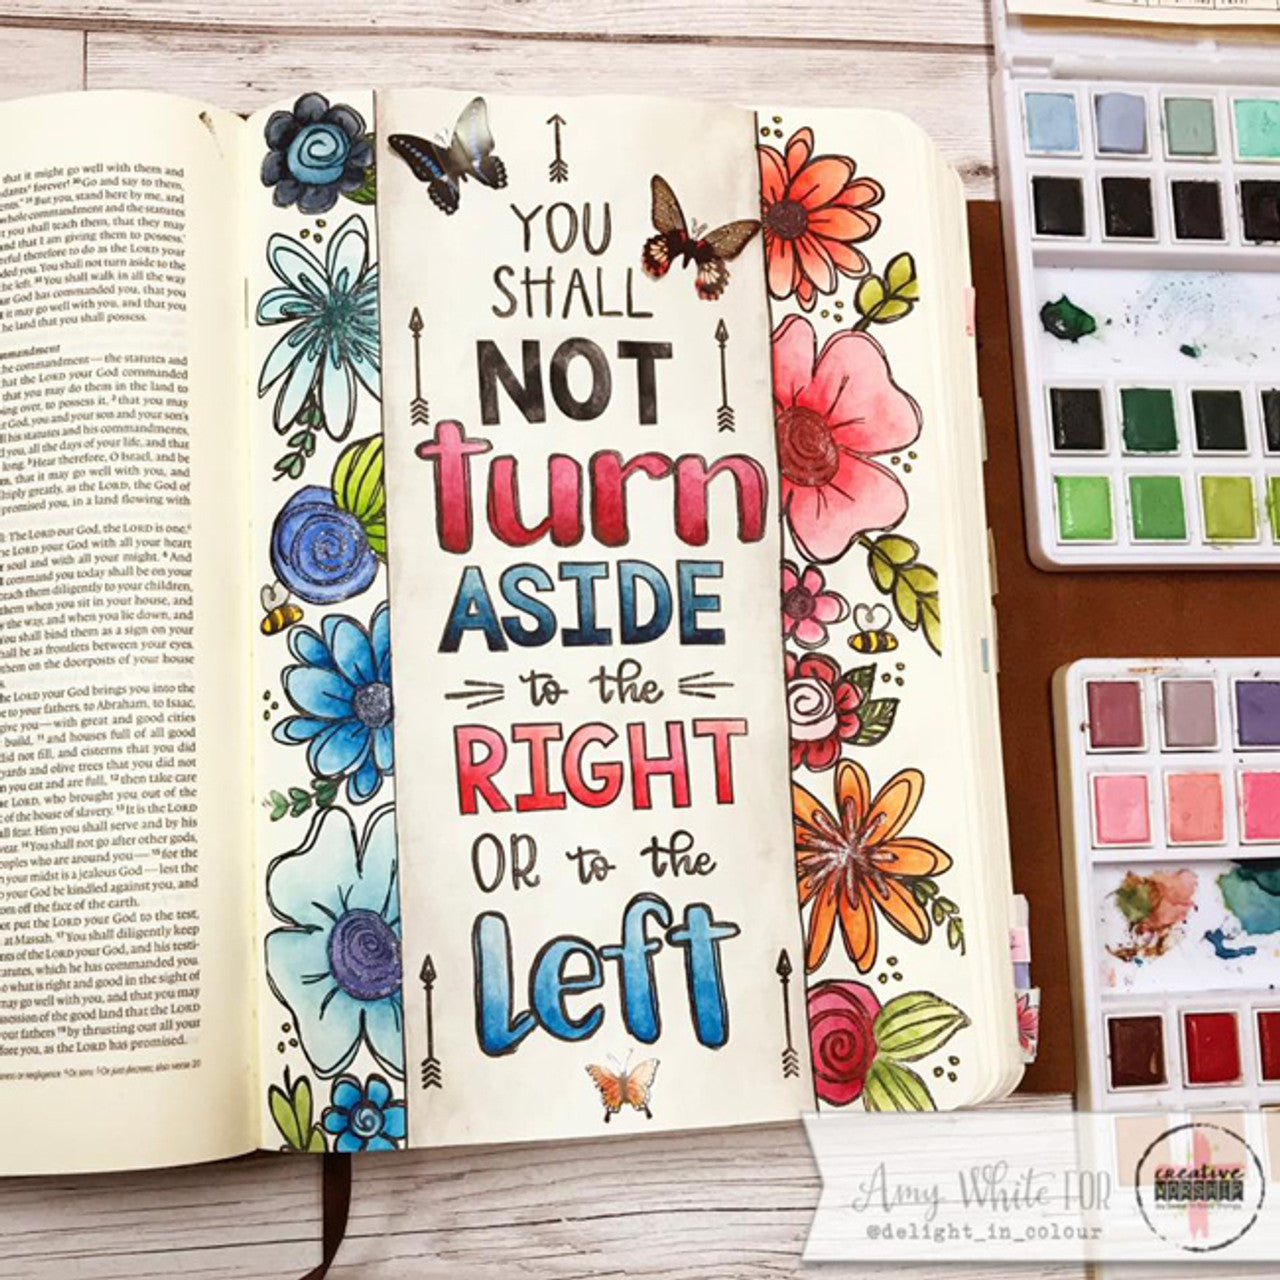 that it might go well with them and
forever! Go and say to them,
But you, stand here by me, and
whole commandment and the statutes
you shall teach them, that they may
and that I am giving them to possess.
therefore to do as the LORD your
You shall not turn aside to the
the left. You shall walk in all the way
God has commanded you, that you
it may go well with you, and that you
land that you shall possess.
the commandment—the statutes and
that the LORD your God commanded
that you may do them in the land to
going over, to possess it, that you may
God, you and your son and your son's
his statutes and his commandments,
all the days of your life, and that
long. Hear therefore, O Israel, and be
that it may go well with you, and
greatly, as the LORD, the God of
promised you, in a land flowing with
The LORD our God, the LORD is one.
the LORD your God with all your heart
soul and with all your might. And
command you today shall be on your
teach them diligently to your children,
them when you sit in your house, and
by the way, and when you lie down, and
You shall bind them as a sign on your
shall be as frontlets between your eyes.
them on the doorposts of your house
the LORD your God brings you into the
to your fathers, to Abraham, to Isaac,
give you—with great and good cities
build, and houses full of all good
did not fill, and cisterns that you did
and olive trees that you did not
you eat and are full, then take care
LORD, who brought you out of the
of the house of slavery. It is the LORD
fear. Him you shall serve and by his
You shall not go after other gods,
peoples who are around you— for the
your midst is a jealous God—lest the
your God be kindled against you, and
off the face of the earth.
put the LORD your God to the test,
at Massah. You shall diligently keep
of the LORD your God, and his testi-
statutes, which he has commanded you.
what is right and good in the sight of
may go well with you, and that you may
possession of the good land that the LORD
your fathers by thrusting out all your
before you, as the LORD has promised.
YOU
SHALL
NOT
turn
ASIDE
to the
RIGHT
OR to the
Left
Amy White FOR
@delight_in_colour
creative
WORSHIP